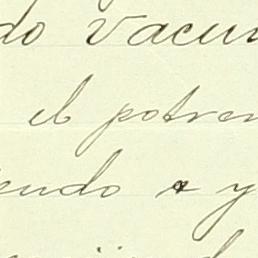 do vacun
el potren
endo a y